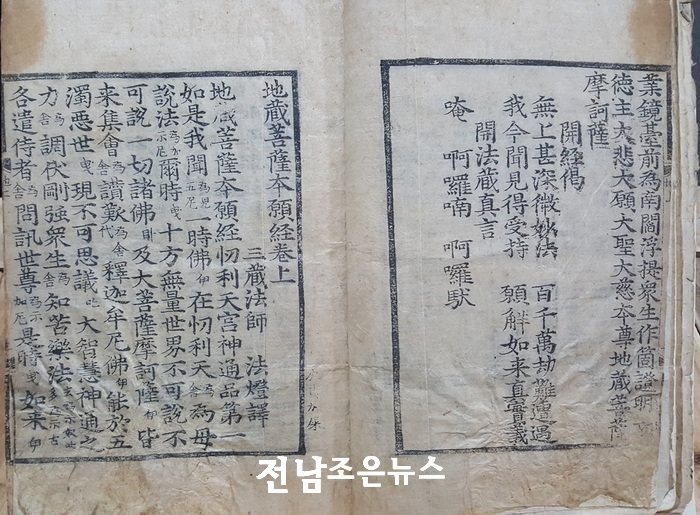 業鏡臺前為南閻浮提衆生作箇證明功
德主大悲大願大聖大慈本尊地蔵菩薩
摩訶薩
開經偈
無上甚深微妙法 百千萬劫難遭遇
我今聞見得受持 願解如来真實義
開法蔵真言
唵 啊羅喃 啊羅馱
地蔵菩薩本願經卷上
三蔵法師 法燈譯
地蔵菩薩本願經忉利天宮神通品第一
如是我聞 一時佛 在忉利天 為母
說法 爾時 十方無量世界不可說不
可說一切諸佛 及大菩薩摩訶薩 皆
来集會 讚歎 釋迦牟尼佛 能於五
濁惡世 現不可思議 大智慧神通之
力 調伏剛強衆生 知苦樂法
各遣侍者 問訊世尊 是時 如来
전남조은뉴스